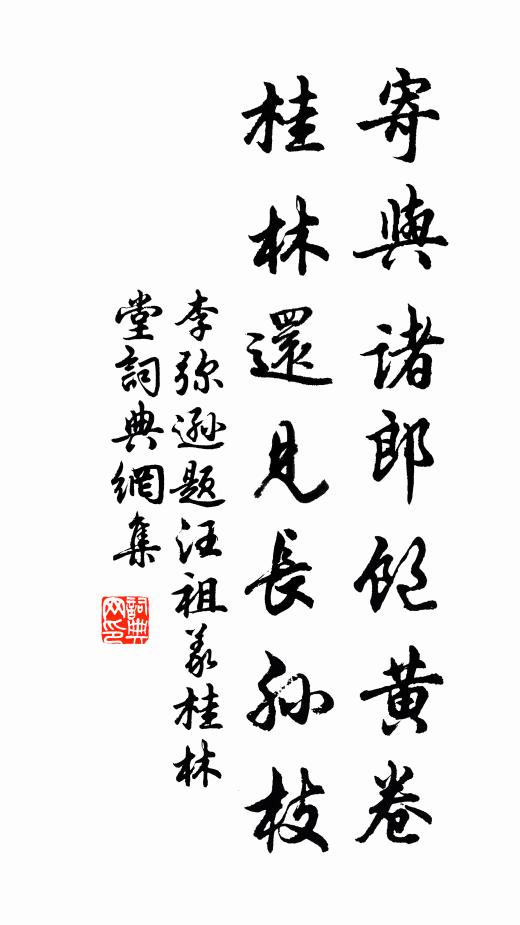 寄與諸郎飽黃卷
桂林還見長孫枝
李弥遜題汪祖義桂林
堂詞典網集
詞典网印